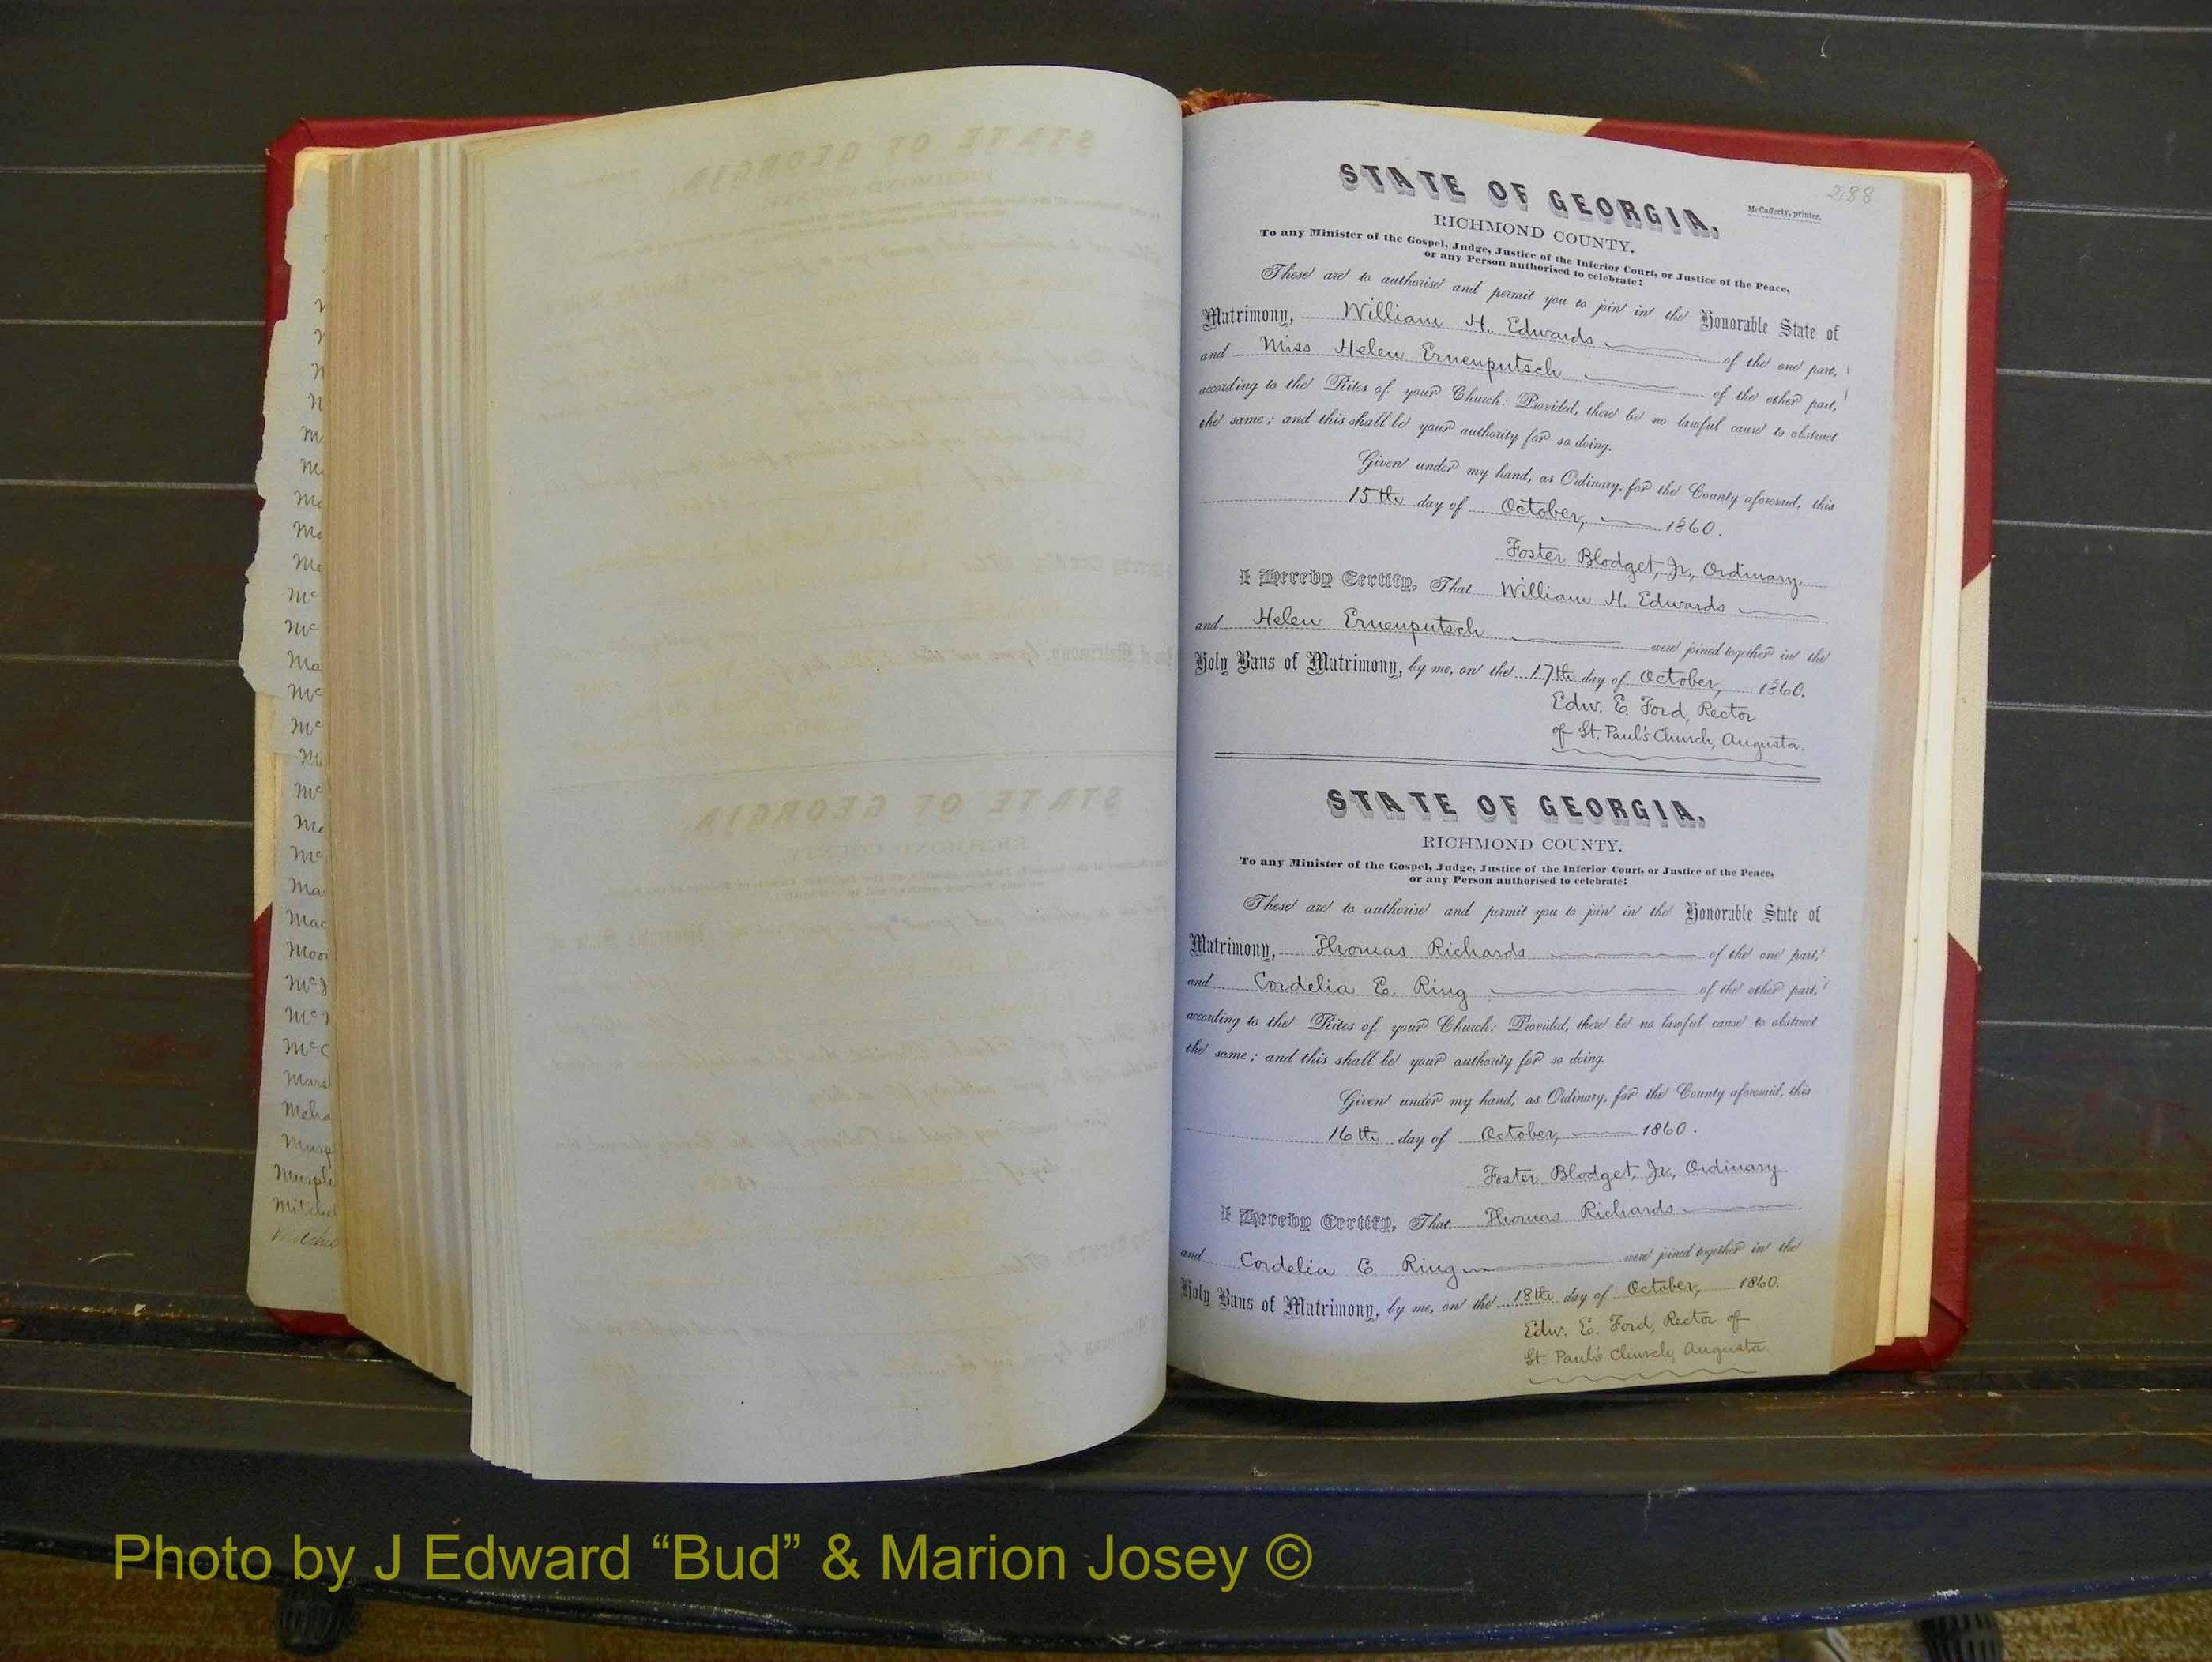 288
STATE OF GEORGIA,
McCafferty, printer.
RICHMOND COUNTY.
To any Minister of the Gospel, Judge, Justice of the Inferior Court, or Justice of the Peace,
or any Person authorised to celebrate:
These are to authorise and permit you to join in the Honorable State of
Matrimony, William H. Edwards of the one part,
and Miss Helen Ernenputsch of the other part,
according to the Rites of your Church: Provided, there be no lawful cause to obstruct
the same; and this shall be your authority for so doing.
Given under my hand, as Ordinary, for the County aforesaid, this
15th day of October, 1860.
Foster Blodget, Jr., Ordinary.
I Hereby Certify, That William H. Edwards
and Helen Ernenputsch were joined together in the
Holy Bans of Matrimony, by me, on the 17th day of October, 1860.
Edw. E. Ford, Rector
of St. Paul's Church, Augusta.
STATE OF GEORGIA,
RICHMOND COUNTY.
To any Minister of the Gospel, Judge, Justice of the Inferior Court, or Justice of the Peace,
or any Person authorised to celebrate:
These are to authorise and permit you to join in the Honorable State of
Matrimony, Thomas Richards of the one part,
and Cordelia E. Ring of the other part,
according to the Rites of your Church: Provided, there be no lawful cause to obstruct
the same; and this shall be your authority for so doing.
Given under my hand, as Ordinary, for the County aforesaid, this
16th day of October, 1860.
Foster Blodget, Jr., Ordinary
I Hereby Certify, That Thomas Richards
and Cordelia E Ring were joined together in the
Holy Bans of Matrimony, by me, on the 18th day of October, 1860.
Edw. E. Ford, Rector of
St. Paul's Church, Augusta
Photo by J Edward “Bud” & Marion Josey ©